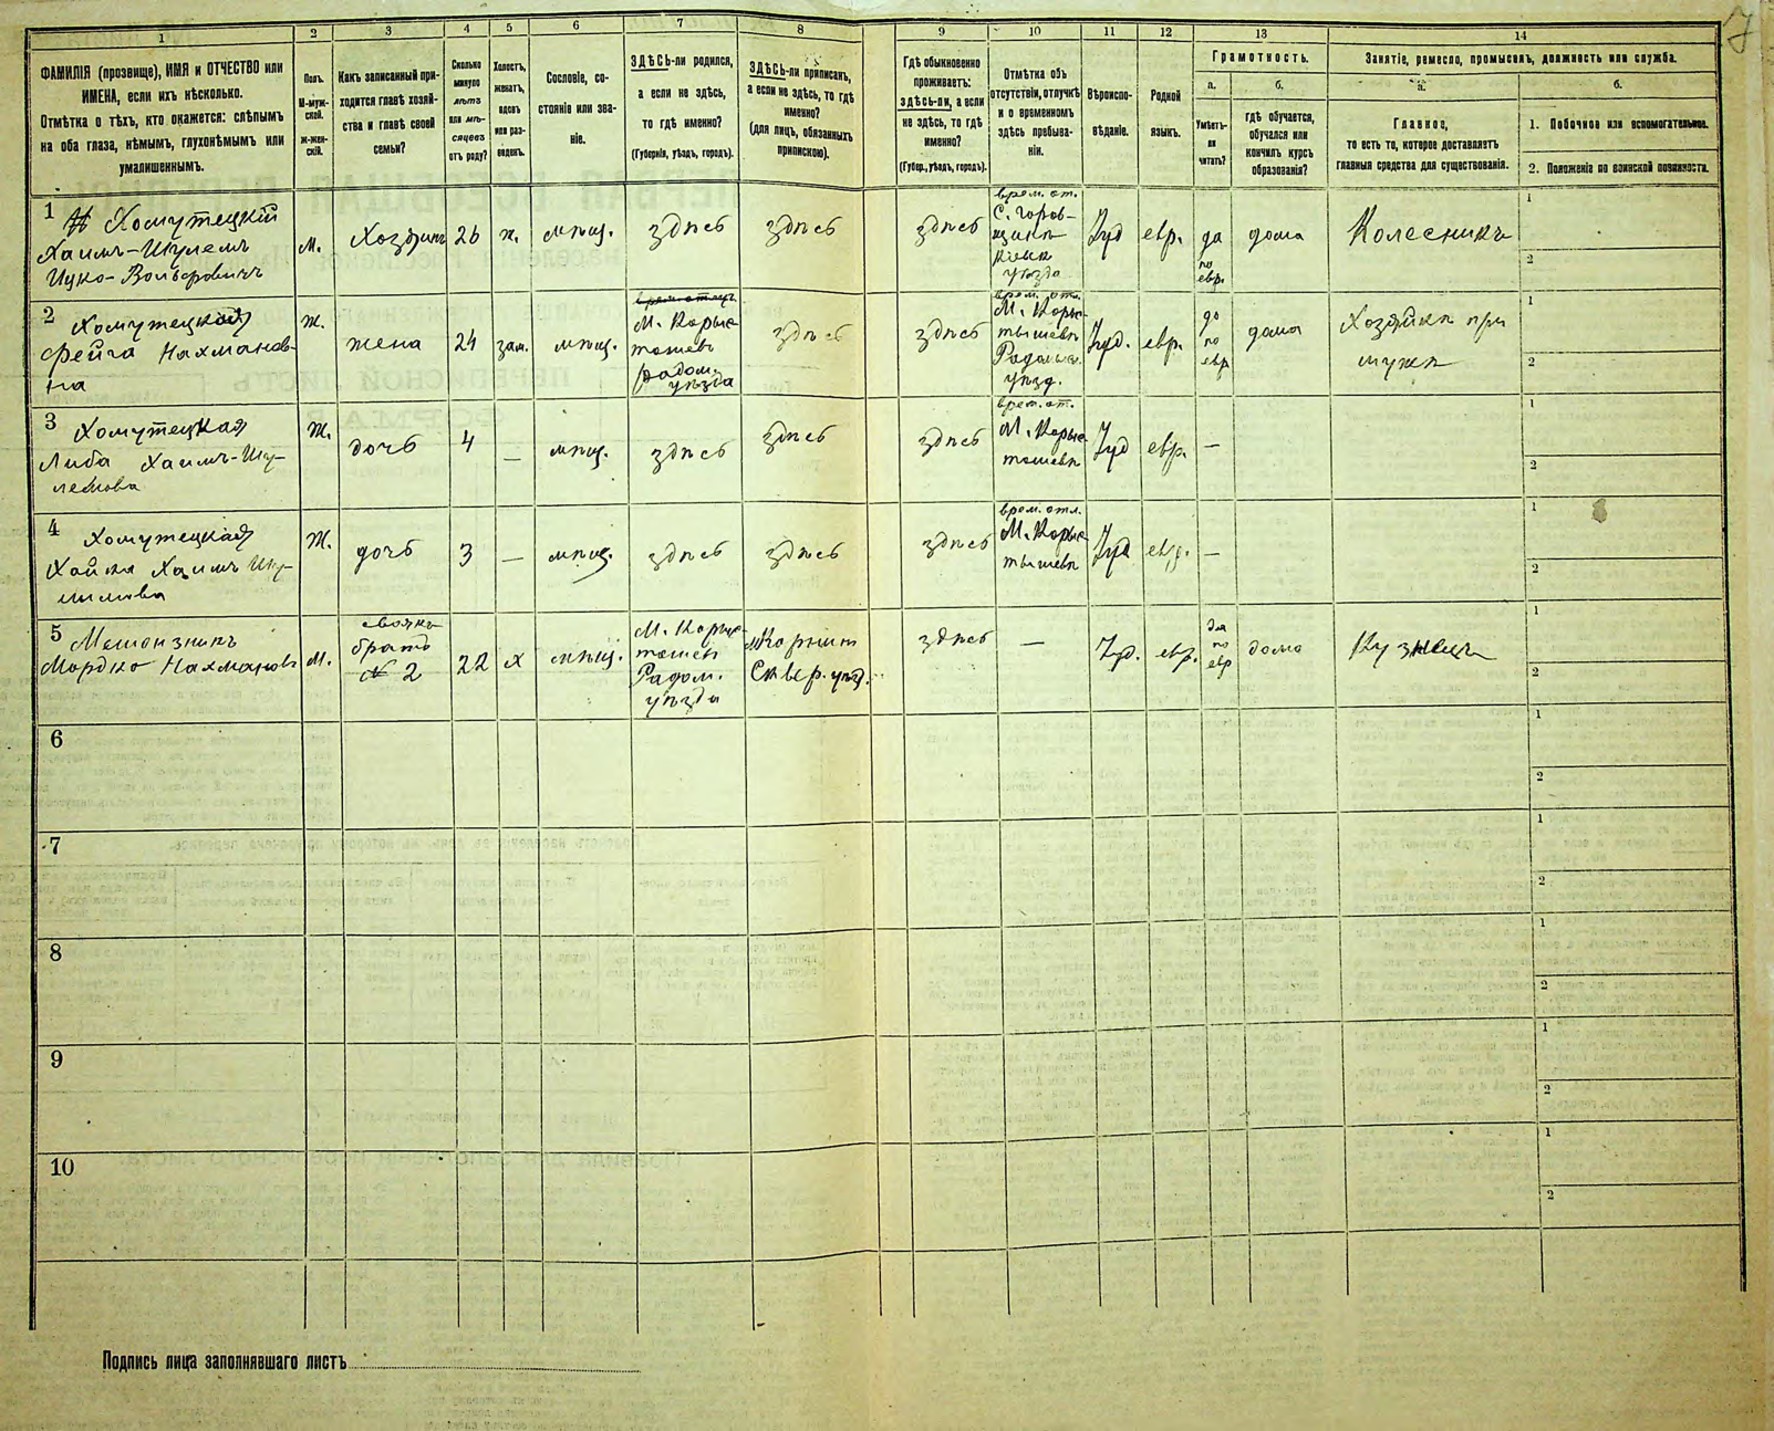 1
2
3
4
5
6
7
8
9
10
11
12
13
14
ФАМИЛІЯ (прозвище), ИМЯ и ОТЧЕСТВО или
ИМЕНА, если ихъ нѣсколько.
Отмѣтка о тѣхъ, кто окажется: слѣпымъ
на оба глаза, нѣмымъ, глухонѣмымъ или
умалишеннымъ.
Полъ.
М-муж-
ской.
ж-жен-
скій.
Какъ записанный при-
ходится главѣ хозяй-
ства и главѣ своей
семьи?
Сколько
минуло
лѣтъ
или мѣ-
сяцевъ
отъ роду?
Холостъ,
женатъ,
вдовъ
или раз-
веденъ.
Сословіе, со-
стояніе или зва-
ніе.
ЗДѢСЬ-ли родился,
а если не здѣсь,
то гдѣ именно?
(Губернія, уѣздъ, городъ).
ЗДѢСЬ-ли приписанъ,
а если не здѣсь, то гдѣ
именно?
(для лицъ, обязанныхъ
припискою).
Гдѣ обыкновенно
проживаетъ:
здѣсь-ли, а если
не здѣсь, то гдѣ
именно?
(Губер., уѣздъ, городъ).
Отмѣтка объ
отсутствіи, отлучкѣ
и о временномъ
здѣсь пребыва-
ніи.
Вѣроиспо-
вѣданіе.
Родной
языкъ.
Грамотность.
а.
Умѣетъ-
ли
читать?
б.
гдѣ обучается,
обучался или
кончилъ курсъ
образованія?
Занятіе, ремесло, промыселъ, должность или служба.
а.
Главное,
то есть то, которое доставляетъ
главныя средства для существованія.
б.
1. Побочное или вспомогательное.
2. Положеніе по воинской повинности.
1
Хомутецкій
Хаимъ-Шулемъ
Ицко-Вольфовичъ
м.
Хозяинъ
26
ж.
мѣщ.
здѣсь
здѣсь
здѣсь
врем. от.
уѣзда
Іуд
евр.
да
по
евр.
дома
Колесникъ
1
2
2
Хомутецкая
Фейга Нахманов-
на
Ж.
жена
24
зам.
мѣщ.
М. Корыс-
тышевъ
Радом.
уѣзда
здѣсь
здѣсь
врем. отл.
М. Корыс-
тышевъ
Радомыс.
уѣзд.
Іуд.
евр.
да
по
евр
дома
Хозяйка при
мужѣ
1
2
3
Хомутецкая
Либа Хаимъ-Шу-
лемова
Ж.
дочь
4
—
мѣщ.
здѣсь
здѣсь
здѣсь
врем. от.
М. Корыс
тышевъ
Іуд
евр.
—
1
2
4
Хомутецкая
Хайка Хаимъ Шу-
лимова
Ж.
дочь
3
—
мѣщ.
здѣсь
здѣсь
здѣсь
врем. отл.
М. Корыс
тышевъ
Іуд
евр.
—
1
2
5
Мордко Нахмановъ
м.
своякъ
братъ
№ 2
22
х
мѣщ.
М. Корыс-
тышев
Радом.
уѣзда
Сквер. уѣзд.
здѣсь
—
Іуд.
евр.
да
по
евр
дома
Кузнецъ
1
2
6
1
2
7
1
2
8
1
2
9
1
2
10
1
2
Подпись лица заполнявшаго листъ